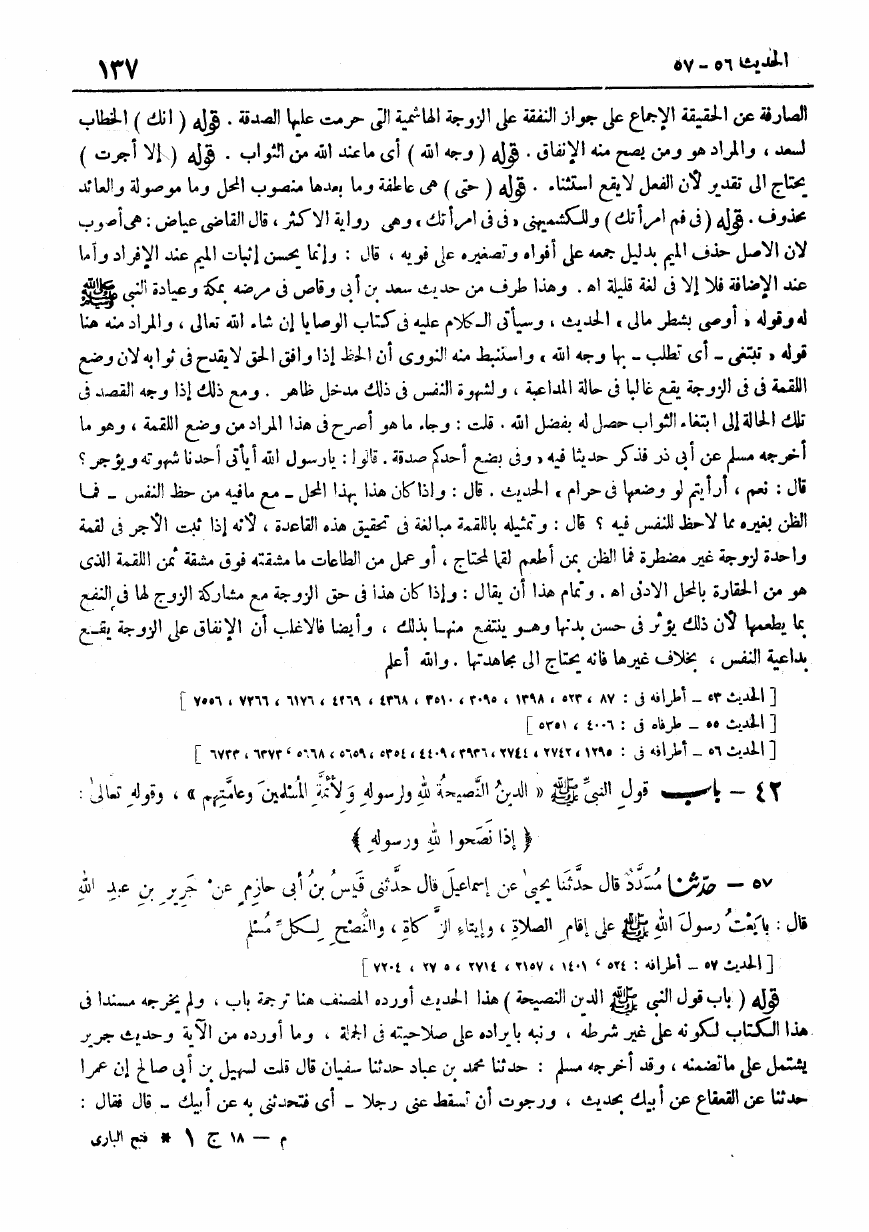 الحديث ٥٦ - ٥٧
١٣٧
الصارفة عن الحقيقة الإجماع على جواز النفقة على الزوجة الهاشمية التى حرمت عليها الصدقة . قوله ( انك ) الخطاب
لسعد ، والمراد هو ومن يصح منه الإنفاق . قوله ( وجه الله ) أى ماعند الله من الثواب . قوله ( إلا أجرت )
يحتاج الى تقدير لأن الفعل لايقع استثناء . قوله ( حتى ) هى عاطفة وما بعدها منصوب المحل وما موصولة والعائد
محذوف . قوله ( فى فم امرأتك ) وللكشميهنى « فى فى امرأتك » وهى رواية الاكثر ، قال القاضى عياض : هى أصوب
لان الاصل حذف الميم بدليل جمعه على أفواه وتصغيره على فويه ، قال : وإنما يحسن إثبات الميم عند الإفراد وأما
عند الإضافة فلا إلا فى لغة قليلة اه . وهذا طرف من حديث سعد بن أبى وقاص فى مرضه بمكة وعيادة النبى ﷺ
له وقوله « أوصى بشطر مالى » الحديث ، وسيأتى الكلام عليه فى كتاب الوصايا إن شاء الله تعالى ، والمراد منه هنا
قوله « تبتغى - أى تطلب - بها وجه الله » واستنبط منه النووى أن الحظ إذا وافق الحق لايقدح فى ثوابه لان وضع
اللقمة فى فى الزوجة يقع غالبا فى حالة المداعبة ، ولشهوة النفس فى ذلك مدخل ظاهر . ومع ذلك إذا وجه القصد فى
تلك الحالة إلى ابتغاء الثواب حصل له بفضل الله . قلت : وجاء ماهو أصرح فى هذا المراد من وضع اللقمة ، وهو ما
أخرجه مسلم عن أبى ذر فذكر حديثا فيه « وفى بضع أحدكم صدقة . قالوا : يارسول الله أيأتى أحدنا شهوته ويؤجر ؟
قال : نعم ، أرأيتم لو وضعها فى حرام » الحديث . قال : واذا كان هذا بهذا المحل - مع مافيه من حظ النفس - فما
الظن بغيره مما لاحظ للنفس فيه ؟ قال : وتمثيله باللقمة مبالغة فى تحقيق هذه القاعدة ، لأنه إذا ثبت الأجر فى لقمة
واحدة لزوجة غير مضطرة فما الظن بمن أطعم لقما لمحتاج ، أو عمل من الطاعات ما مشقته فوق مشقة ثمن اللقمة الذى
هو من الحقارة بالمحل الادنى اه . وتمام هذا أن يقال : وإذا كان هذا فى حق الزوجة مع مشاركة الزوج لها فى النفع
بما يطعمها لأن ذلك يؤثر فى حسن بدنها وهو ينتفع منها بذلك ، وأيضا فالاغلب أن الإنفاق على الزوجة يقع
بداعية النفس ، بخلاف غيرها فانه يحتاج الى مجاهدتها . والله أعلم
[ الحديث ٥٣ - أطرافه فى : ٨٧ ، ٥٢٣ ، ١٣٩٨ ، ٣٠٩٥ ، ٣٥١٠ ، ٤٣٦٨ ، ٤٣٦٩ ، ٦١٧٦ ، ٧٢٦٦ ، ٧٥٥٦ ]
[ الحديث ٥٥ - طرفاه فى : ٤٠٠٦ ، ٥٣٥١ ]
[ الحديث ٥٦ - أطرافه فى : ١٢٩٥ ، ٢٧٤٢ ، ٢٧٤٤ ، ٣٩٣٦ ، ٤٤٠٩ ، ٥٣٥٤ ، ٥٦٥٩ ، ٥٦٦٨ ، ٦٣٧٣ ، ٦٧٣٣ ]
٤٢ - باب قولِ النبىِّ ﷺ « الدينُ النَّصيحةُ للهِ ولرسولِهِ ولأئمَّةِ المُسْلمينَ وعامَّتِهم » ، وقولِهِ تعالىٰ :
﴿ إذا نَصَحوا للهِ ورسولِهِ ﴾
٥٧ - حدّثنا مُسَدَّدٌ قال حدَّثَنا يحيىٰ عن إسماعيلَ قال حدَّثنى قَيْسُ بنُ أبى حازِمٍ عن جَريرِ بنِ عبدِ اللهِ
قال : بايَعْتُ رسولَ اللهِ ﷺ على إقامِ الصلاةِ ، وإيتاءِ الزَّكاةِ ، والنُّصْحِ لِكلِّ مُسْلمٍ
[ الحديث ٥٧ - أطرافه : ٥٢٤ ، ١٤٠١ ، ٢١٥٧ ، ٢٧١٤ ، ٢٧٠٥ ، ٧٢٠٤ ]
قوله ( باب قول النبى ﷺ الدين النصيحة ) هذا الحديث أورده المصنف هنا ترجمة باب ، ولم يخرجه مسندا فى
هذا الكتاب لكونه على غير شرطه ، ونبه بايراده على صلاحيته فى الجملة ، وما أورده من الآية وحديث جرير
يشتمل على ماتضمنه ، وقد أخرجه مسلم : حدثنا محمد بن عباد حدثنا سفيان قال قلت لسهيل بن أبى صالح إن عمرا
حدثنا عن القعقاع عن أبيك بحديث ، ورجوت أن تسقط عنى رجلا - أى فتحدثنى به عن أبيك - قال فقال :
م - ١٨ ج ١ * فتح البارى